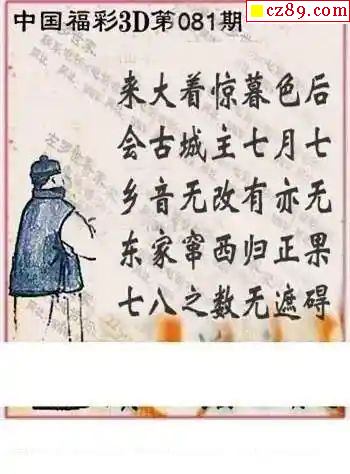 cz89.com
中国福彩3D第081期
来大着惊暮色后
会古城主七月七
乡音无改有亦无
东家窜西归正果
七八之数无遮碍